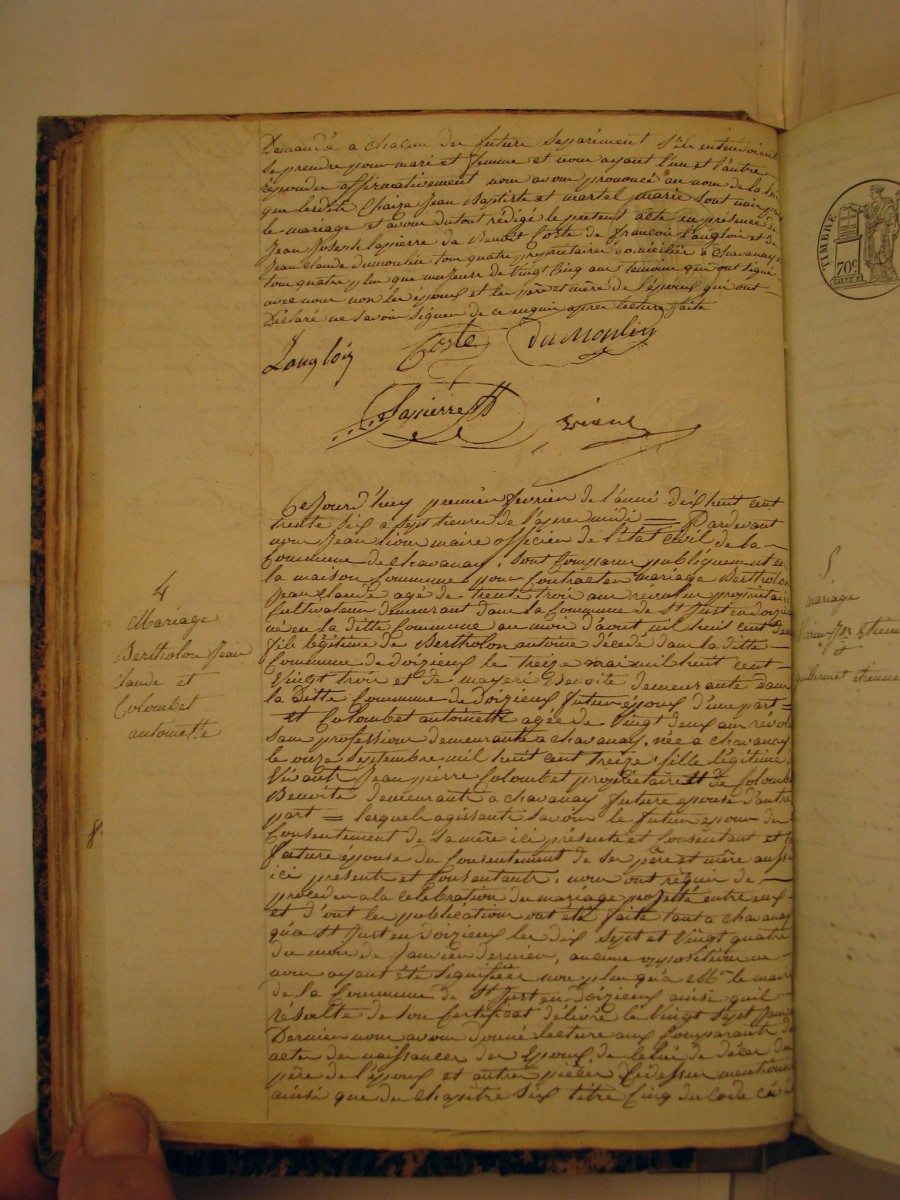 Demandé a chacun des futurs separément s'ils entendoient
se prendre pour mari et femme et nous ayant l'un et l'autre
répondu affirmativement nous avons prononcé au nom de la loi
que lesdits Chaize Jean Baptiste et martel marie sont unis par
le mariage et avons du tout rédigé le présent acte en présence de
Jean Joseph Lapierre de Benoit Coste de francois Langlois et de
Jean Claude dumoulin tous quatre propriétaires domiciliés a chavanay
tous quatre plus que majeurs de vingt cinq ans témoins qui ont signé
avec nous non les époux et les père et mère de l'époux qui ont
Déclaré ne savoir signer de ce enquis apres lecture faite
Langlois Coste du Moulin
Lapierre
4
Mariage
Bertholon Jean
claude et
Colombet
antoinette
Ce Jourd'huy premier fevrier de l'année dix huit cent
trente six a sept heures de l'apres midi = Pardevant
nous Jean maire officier de l'état civil de la
Commune de chavanay. sont comparu publiquement en
la maison Commune pour Contracter mariage Bertholon
Jean Claude agé de trente trois ans révolus propriétaire
Cultivateur demeurant dans la Commune de St Just en doizieux
né en la ditte Commune au mois d'aout mil huit cent deux
fils légitime de Bertholon antoine décédé dans la ditte
Commune de doizieux le treize mai mil huit cent
Vingt trois et de Benoite demeurante dans
la Ditte Commune de Doizieux futur époux d'une part =
et Colombet antoinette agée de vingt deux ans révolus
sans profession demeurante a chavanay. née a chavanay
le onze septembre mil huit cent treize fille légitime
Vivants Jean pierre Colombet propriétaire et de Colombet
Benoite demeurant a chavanay future épouse d'autre
part = lesquels agissants savoir le futur époux du
Consentement de sa mère ici présente et Consentant et la
future épouse du Consentement de ses père et mère aussi
ici présents et Consentants. nous ont réquis de
procéder a la célébration du mariage projetté entre eux
et d'ont les publications ont été faite tant a chavanay
qu'a St Just en doizieux les dix sept et vingt quatre
du mois de Janvier dernier, aucune opposition ne
nous ayant été signifiée non plus qu'a Mr le maire
de la Commune de St Just en doizieux ainsi quil
résulte de son certificat délivré le vingt sept Janvier
Dernier nous avons donné lecture aux Comparants des
actes de naissances des époux, de celui de décès du
père de l'époux et autres pièces Cidessus mentionnées
ainsi que du chapitre six titre cinq du Code civil
TIMBRE
70c
5
mariage
etienne